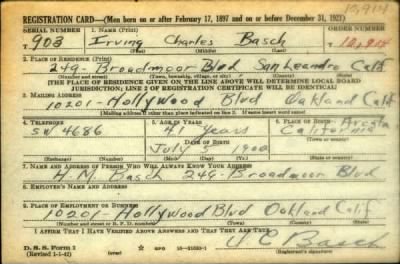 10,914
REGISTRATION CARD—(Men born on or after February 17, 1897 and on or before December 31, 1921)
SERIAL NUMBER 1. NAME (Print) ORDER NUMBER
T 903 Irving Charles Basch
(First) (Middle) (Last)
2. PLACE OF RESIDENCE (Print)
249- Broadmoor Blvd San Leandro Calif
(Number and street) (Town, township, village, or city) (County) (State)
[THE PLACE OF RESIDENCE GIVEN ON THE LINE ABOVE WILL DETERMINE LOCAL BOARD
JURISDICTION; LINE 2 OF REGISTRATION CERTIFICATE WILL BE IDENTICAL]
3. MAILING ADDRESS
10201-Hollywood Blvd Oakland Calif
[Mailing address if other than place indicated on line 2. If same insert word same]
4. TELEPHONE 5. AGE IN YEARS 6. PLACE OF BIRTH
SW 4686 41 Years Arcata
DATE OF BIRTH California
July 5 1900
(Exchange) (Number) (Mo.) (Day) (Yr.) (State or country)
7. NAME AND ADDRESS OF PERSON WHO WILL ALWAYS KNOW YOUR ADDRESS
H. M. Basch 249- Broadmoor Blvd
8. EMPLOYER'S NAME AND ADDRESS
9. PLACE OF EMPLOYMENT OR BUSINESS
10201-Hollywood Blvd Oakland Calif
(Number and street or R. F. D. number) (Town) (County) (State)
I AFFIRM THAT I HAVE VERIFIED ABOVE ANSWERS AND THAT THEY ARE TRUE.
D. S. S. Form 1 GPO 16—21630-1
(Revised 1-1-42) (over) Basch
(Registrant's signature)